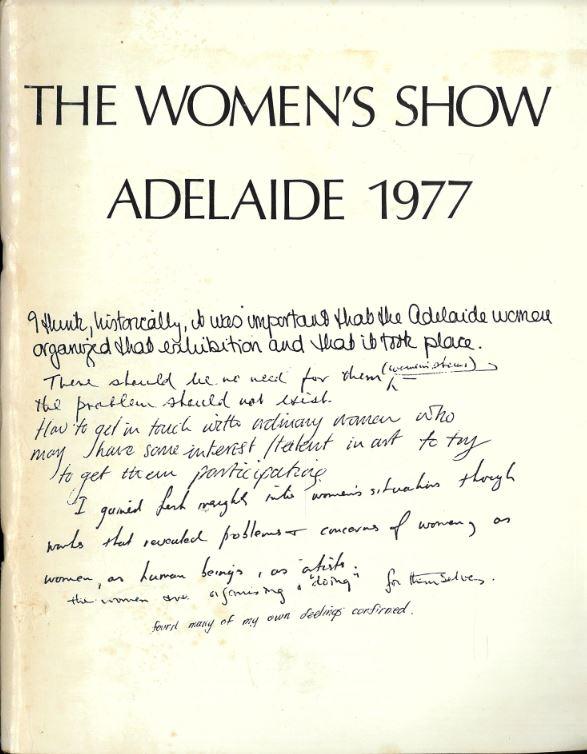 THE WOMEN'S SHOW
ADELAIDE 1977
I think, historically, it was important that the Adelaide women
organized that exhibition and that it took place.
There should be no need for them (women shows)
the problem should not exist.
How to get in touch with ordinary women who
may have some interest/talent in art to try
to get them participating.
I gained fresh insights into women's situations through
works that revealed problems + concerns of women, as
women, as human beings, as artists.
the women are organising + "doing" for themselves.
found many of my own feelings confirmed.